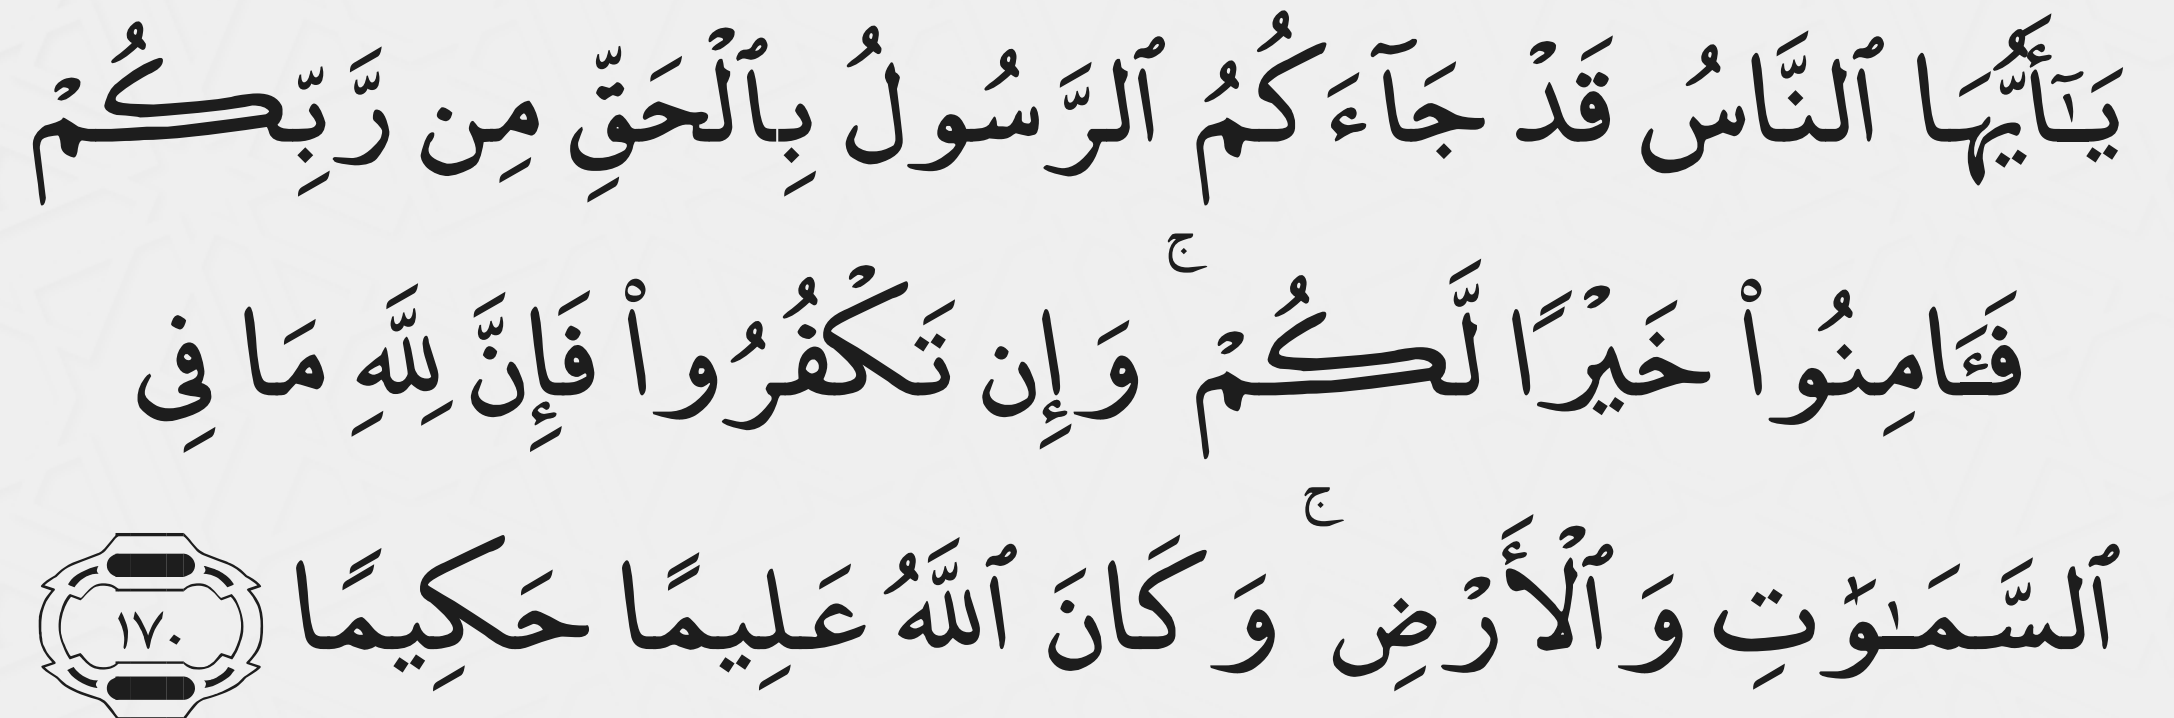 يَـٰٓأَيُّهَا ٱلنَّاسُ قَدْ جَآءَكُمُ ٱلرَّسُولُ بِٱلْحَقِّ مِن رَّبِّكُمْ
فَـَٔامِنُوا۟ خَيْرًا لَّكُمْ ۚ وَإِن تَكْفُرُوا۟ فَإِنَّ لِلَّهِ مَا فِى
ٱلسَّمَـٰوَٰتِ وَٱلْأَرْضِ ۚ وَكَانَ ٱللَّهُ عَلِيمًا حَكِيمًا ١٧٠